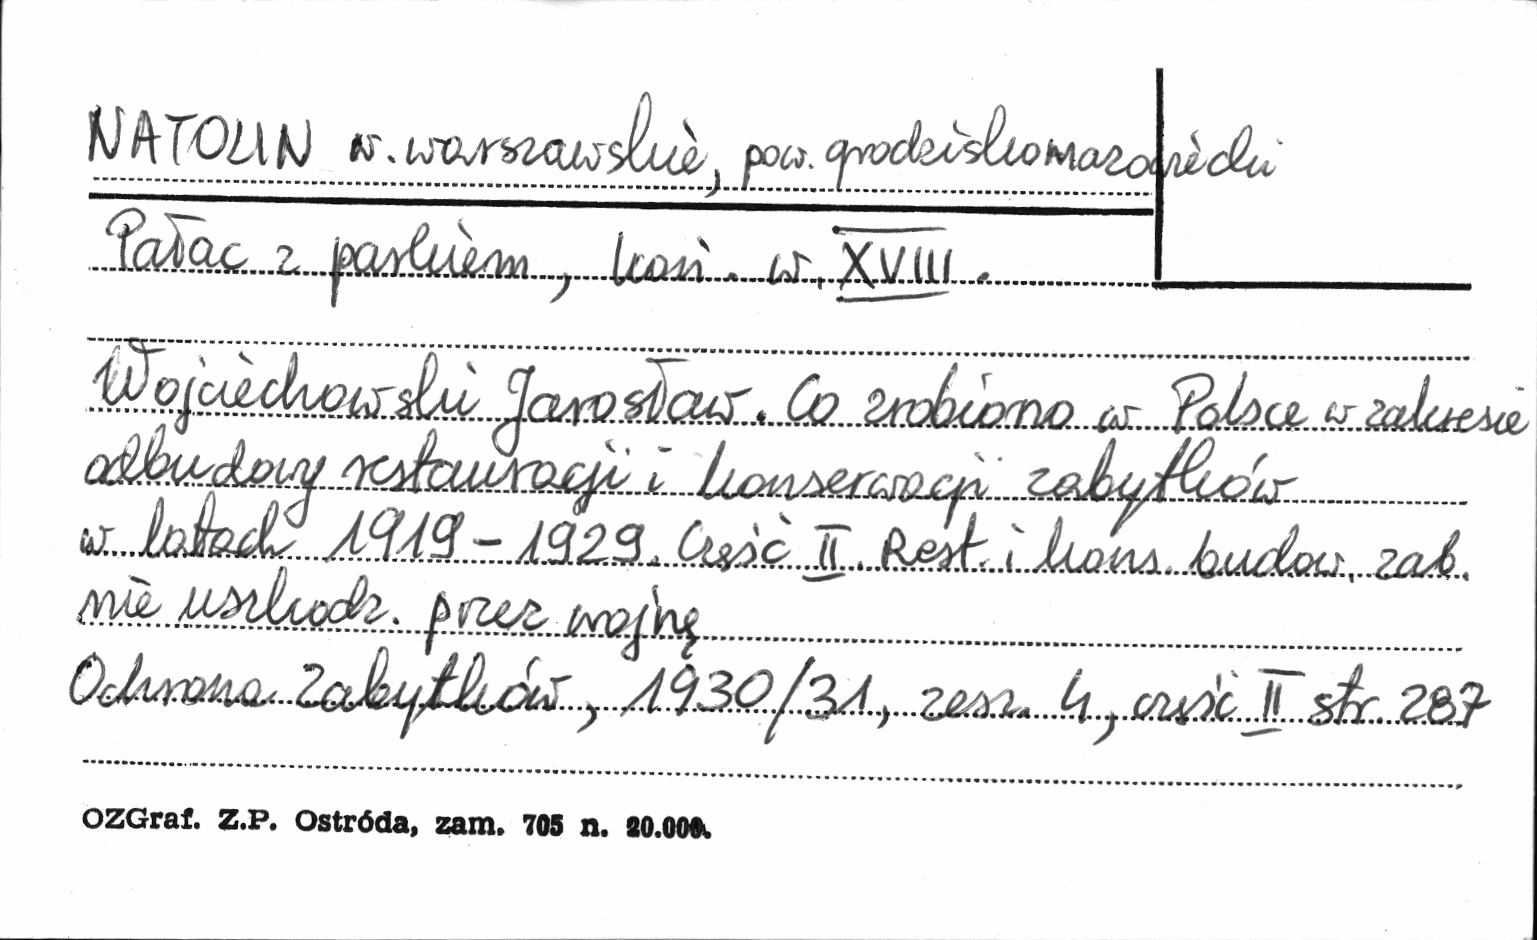 NATOLIN w. warszawskie, pow. grodziskomazowiecki
Pałac z parkiem, koń. w. XVIII.
Wojciechowski Jarosław. Co zrobiono w Polsce w zakresie
odbudowy restauracji i konserwacji zabytków
w latach 1919-1929. Część II. Rest. i kons. budow. zab.
nie uszkodz. przez wojnę
Ochrona Zabytków, 1930/31, zesz. 4, część II str. 287
OZGraf. Z.P. Ostróda, zam. 705 n. 20.000.